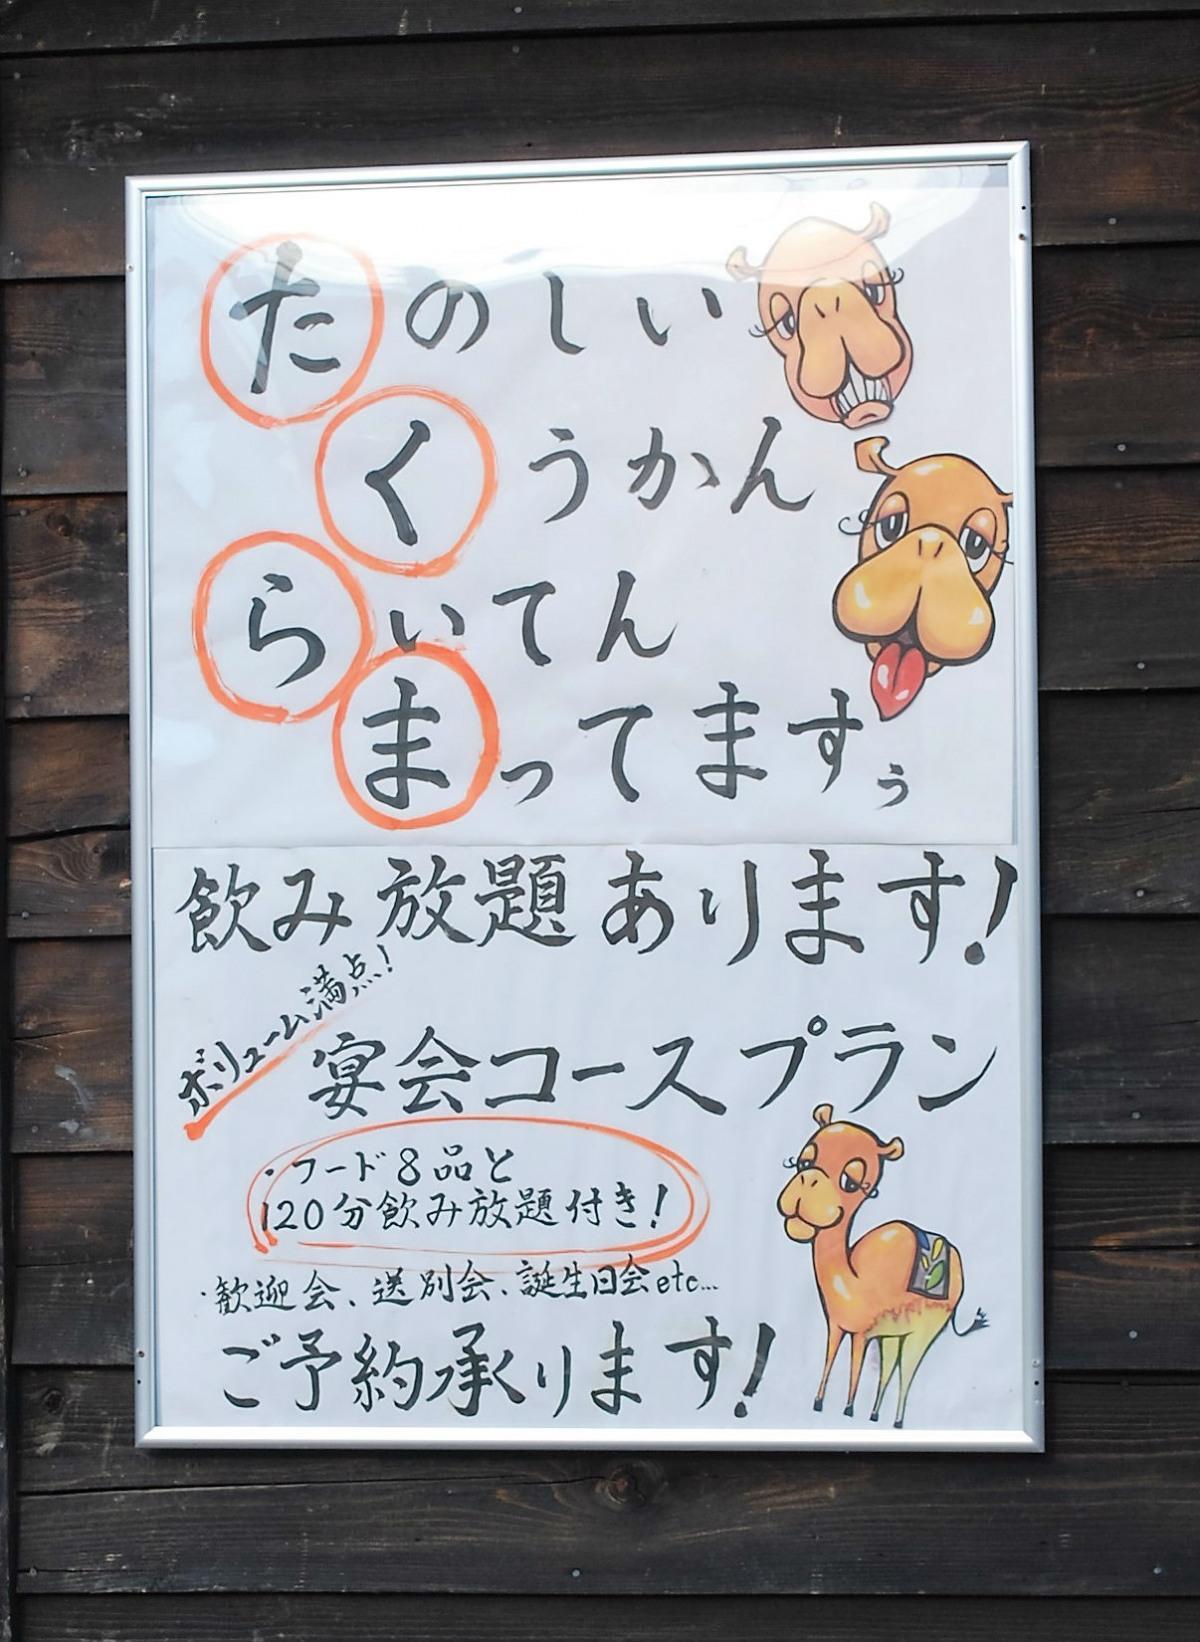 たのしい
くうかん
らいてん
まってますぅ
飲み放題あります!
ボリューム満点!
宴会コースプラン
・フード8品と
120分飲み放題付き!
・歓迎会、送別会、誕生日会etc...
ご予約承ります!